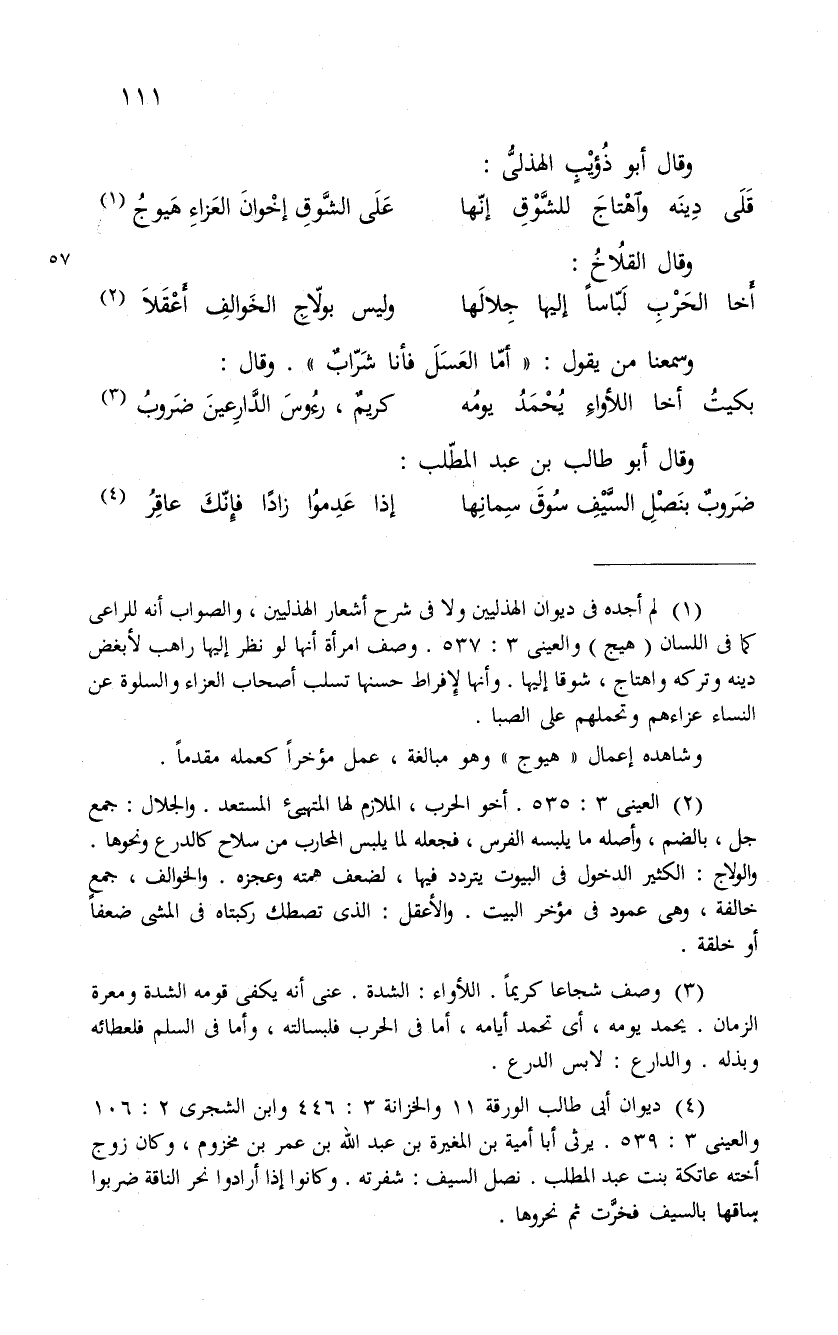 ١١١
وقال أبو ذُؤَيْبٍ الهذلىُّ :
قَلَى دِينَه وَٱهْتاجَ للشَّوْقِ إنّها عَلَى الشَّوقِ إخْوانَ العَزاءِ هَيوجُ (١)
وقال القلُاخُ :
٥٧
أَخا الحَرْبِ لَبّاساً إليها جِلالَها وليس بولّاجِ الخَوالفِ أَعْقَلاَ (٢)
وسمعنا من يقول : « أمّا العَسَلَ فأنا شَرّابٌ » . وقال :
بكيتُ أخا اللأواءِ يُحْمَدُ يومُه كريمٌ ، رءُوسَ الدَّارِعينَ ضَروبُ (٣)
وقال أبو طالب بن عبد المطّلب :
ضَروبٌ بنَصْلِ السَّيْفِ سُوقَ سِمانِها إذا عَدِموُا زادًا فإِنّكَ عاقِرُ (٤)
(١) لم أجده فى ديوان الهذليين ولا فى شرح أشعار الهذليين ، والصواب أنه للراعى
كما فى اللسان ( هيج ) والعينى ٣ : ٥٣٧ . وصف امرأة أنها لو نظر إليها راهب لأبغض
دينه وتركه واهتاج ، شوقا إليها . وأنها لإفراط حسنها تسلب أصحاب العزاء والسلوة عن
النساء عزاءهم وتحملهم على الصبا .
وشاهده إعمال « هيوج » وهو مبالغة ، عمل مؤخراً كعمله مقدماً .
(٢) العينى ٣ : ٥٣٥ . أخو الحرب ، الملازم لها المتهيئ المستعد . والجلال : جمع
جل ، بالضم ، وأصله ما يلبسه الفرس ، فجعله لما يلبس المحارب من سلاح كالدرع ونحوها .
والولاج : الكثير الدخول فى البيوت يتردد فيها ، لضعف همته وعجزه . والخوالف ، جمع
خالفة ، وهى عمود فى مؤخر البيت . والأعقل : الذى تصطك ركبتاه فى المشى ضعفاً
أو خلقة .
(٣) وصف شجاعا كريماً . اللأواء : الشدة . عنى أنه يكفى قومه الشدة ومعرة
الزمان . يحمد يومه ، أى تحمد أيامه ، أما فى الحرب فلبسالته ، وأما فى السلم فلعطائه
وبذله . والدارع : لابس الدرع .
(٤) ديوان أبى طالب الورقة ١١ والخزانة ٣ : ٤٤٦ وابن الشجرى ٢ : ١٠٦
والعينى ٣ : ٥٣٩ . يرثى أبا أمية بن المغيرة بن عبد الله بن عمر بن مخزوم ، وكان زوج
أخته عاتكة بنت عبد المطلب . نصل السيف : شفرته . وكانوا إذا أرادوا نحر الناقة ضربوا
ساقها بالسيف فخرَّت ثم نحروها .